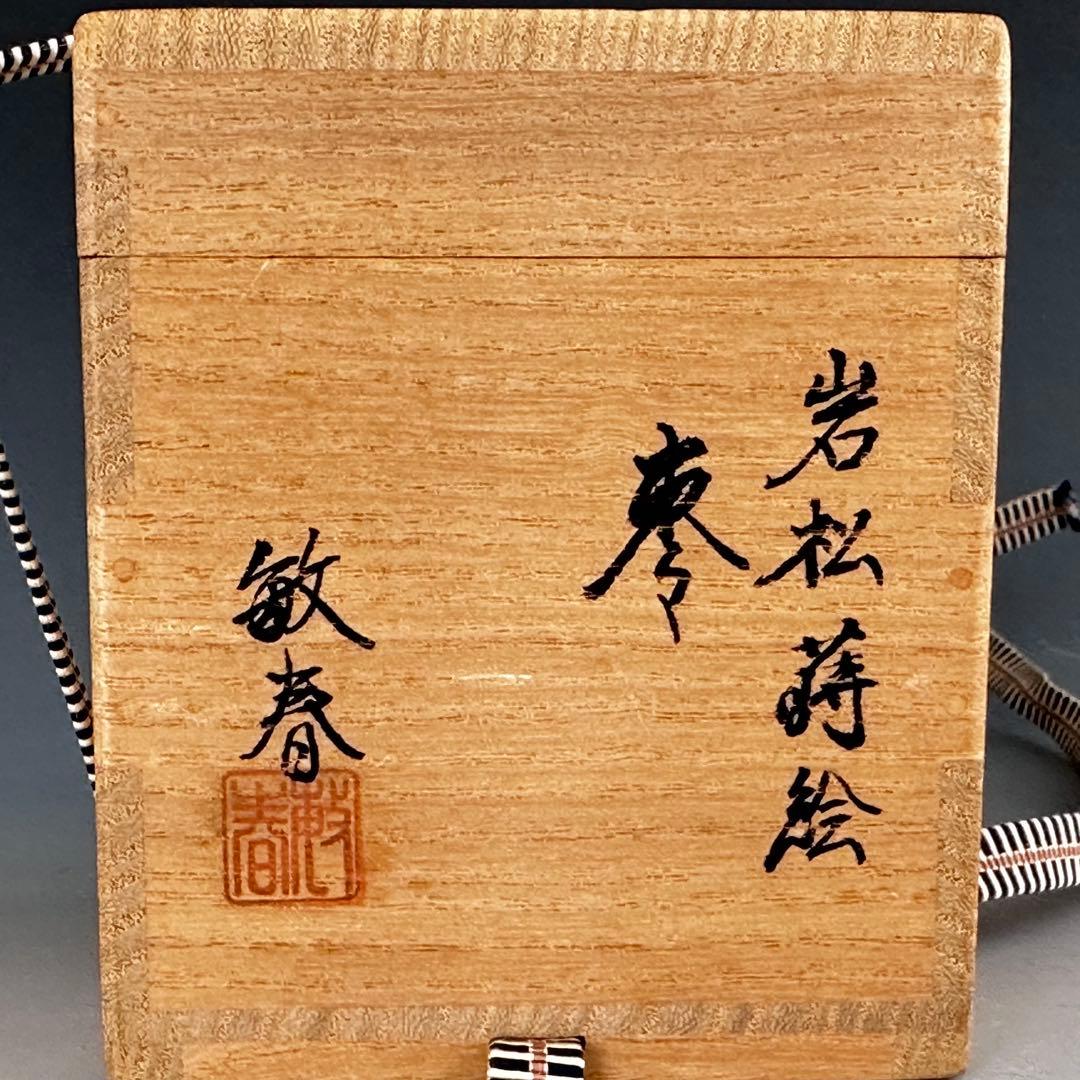 岩松蒔絵
棗
敏春
敏春